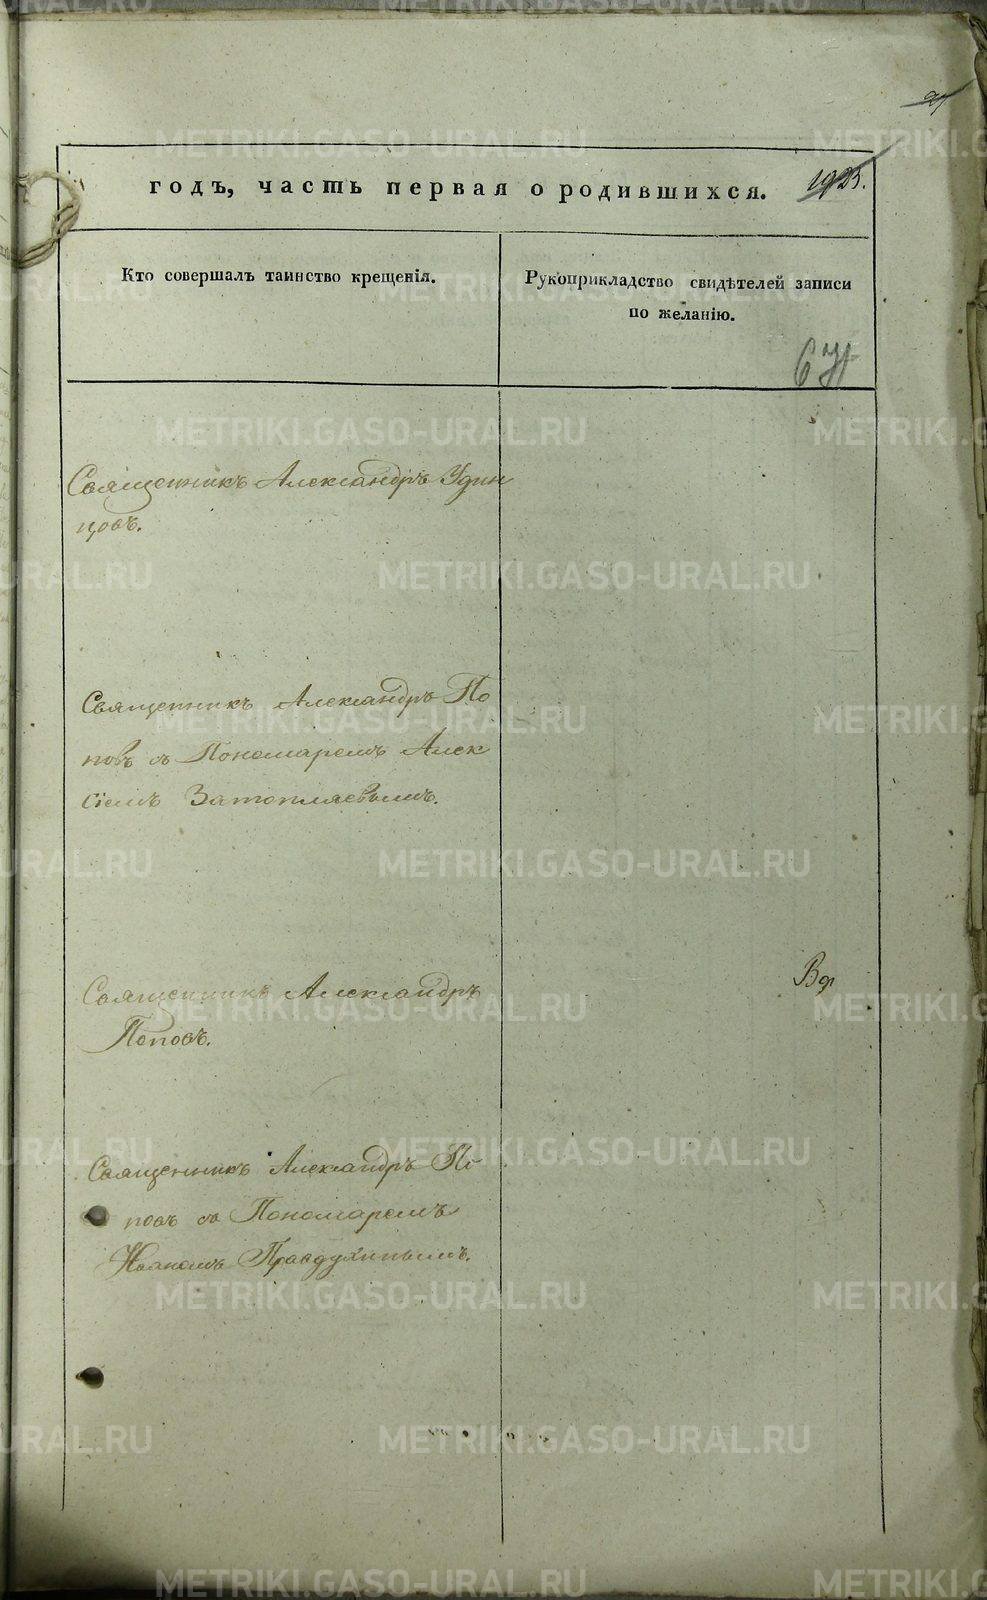 годъ, часть первая о родившихся.
Кто совершалъ таинство крещенія.
Рукоприкладство свидѣтелей записи
по желанію.
Священникъ Александръ Удин
цовъ.
Священникъ Александръ По
повъ съ Пономаремъ Алек
сіемъ Затопляевымъ.
Священникъ Александръ
Поповъ.
Священникъ Александръ По
повъ съ Пономаремъ
Иоаномъ Правдухинымъ.
METRIKI.GASO-URAL.RU